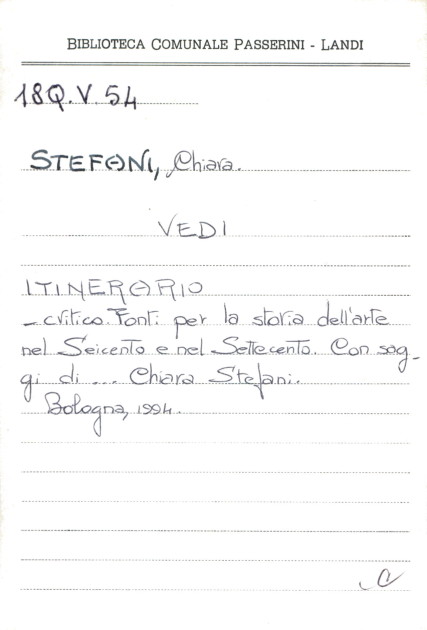 BIBLIOTECA COMUNALE PASSERINI - LANDI
18Q.V.54
STEFANI, Chiara.
VEDI
ITINERARIO
- critico. Fonti per la storia dell'arte
nel Seicento e nel Settecento. Con sag-
gi di ... Chiara Stefani.
Bologna, 1994.